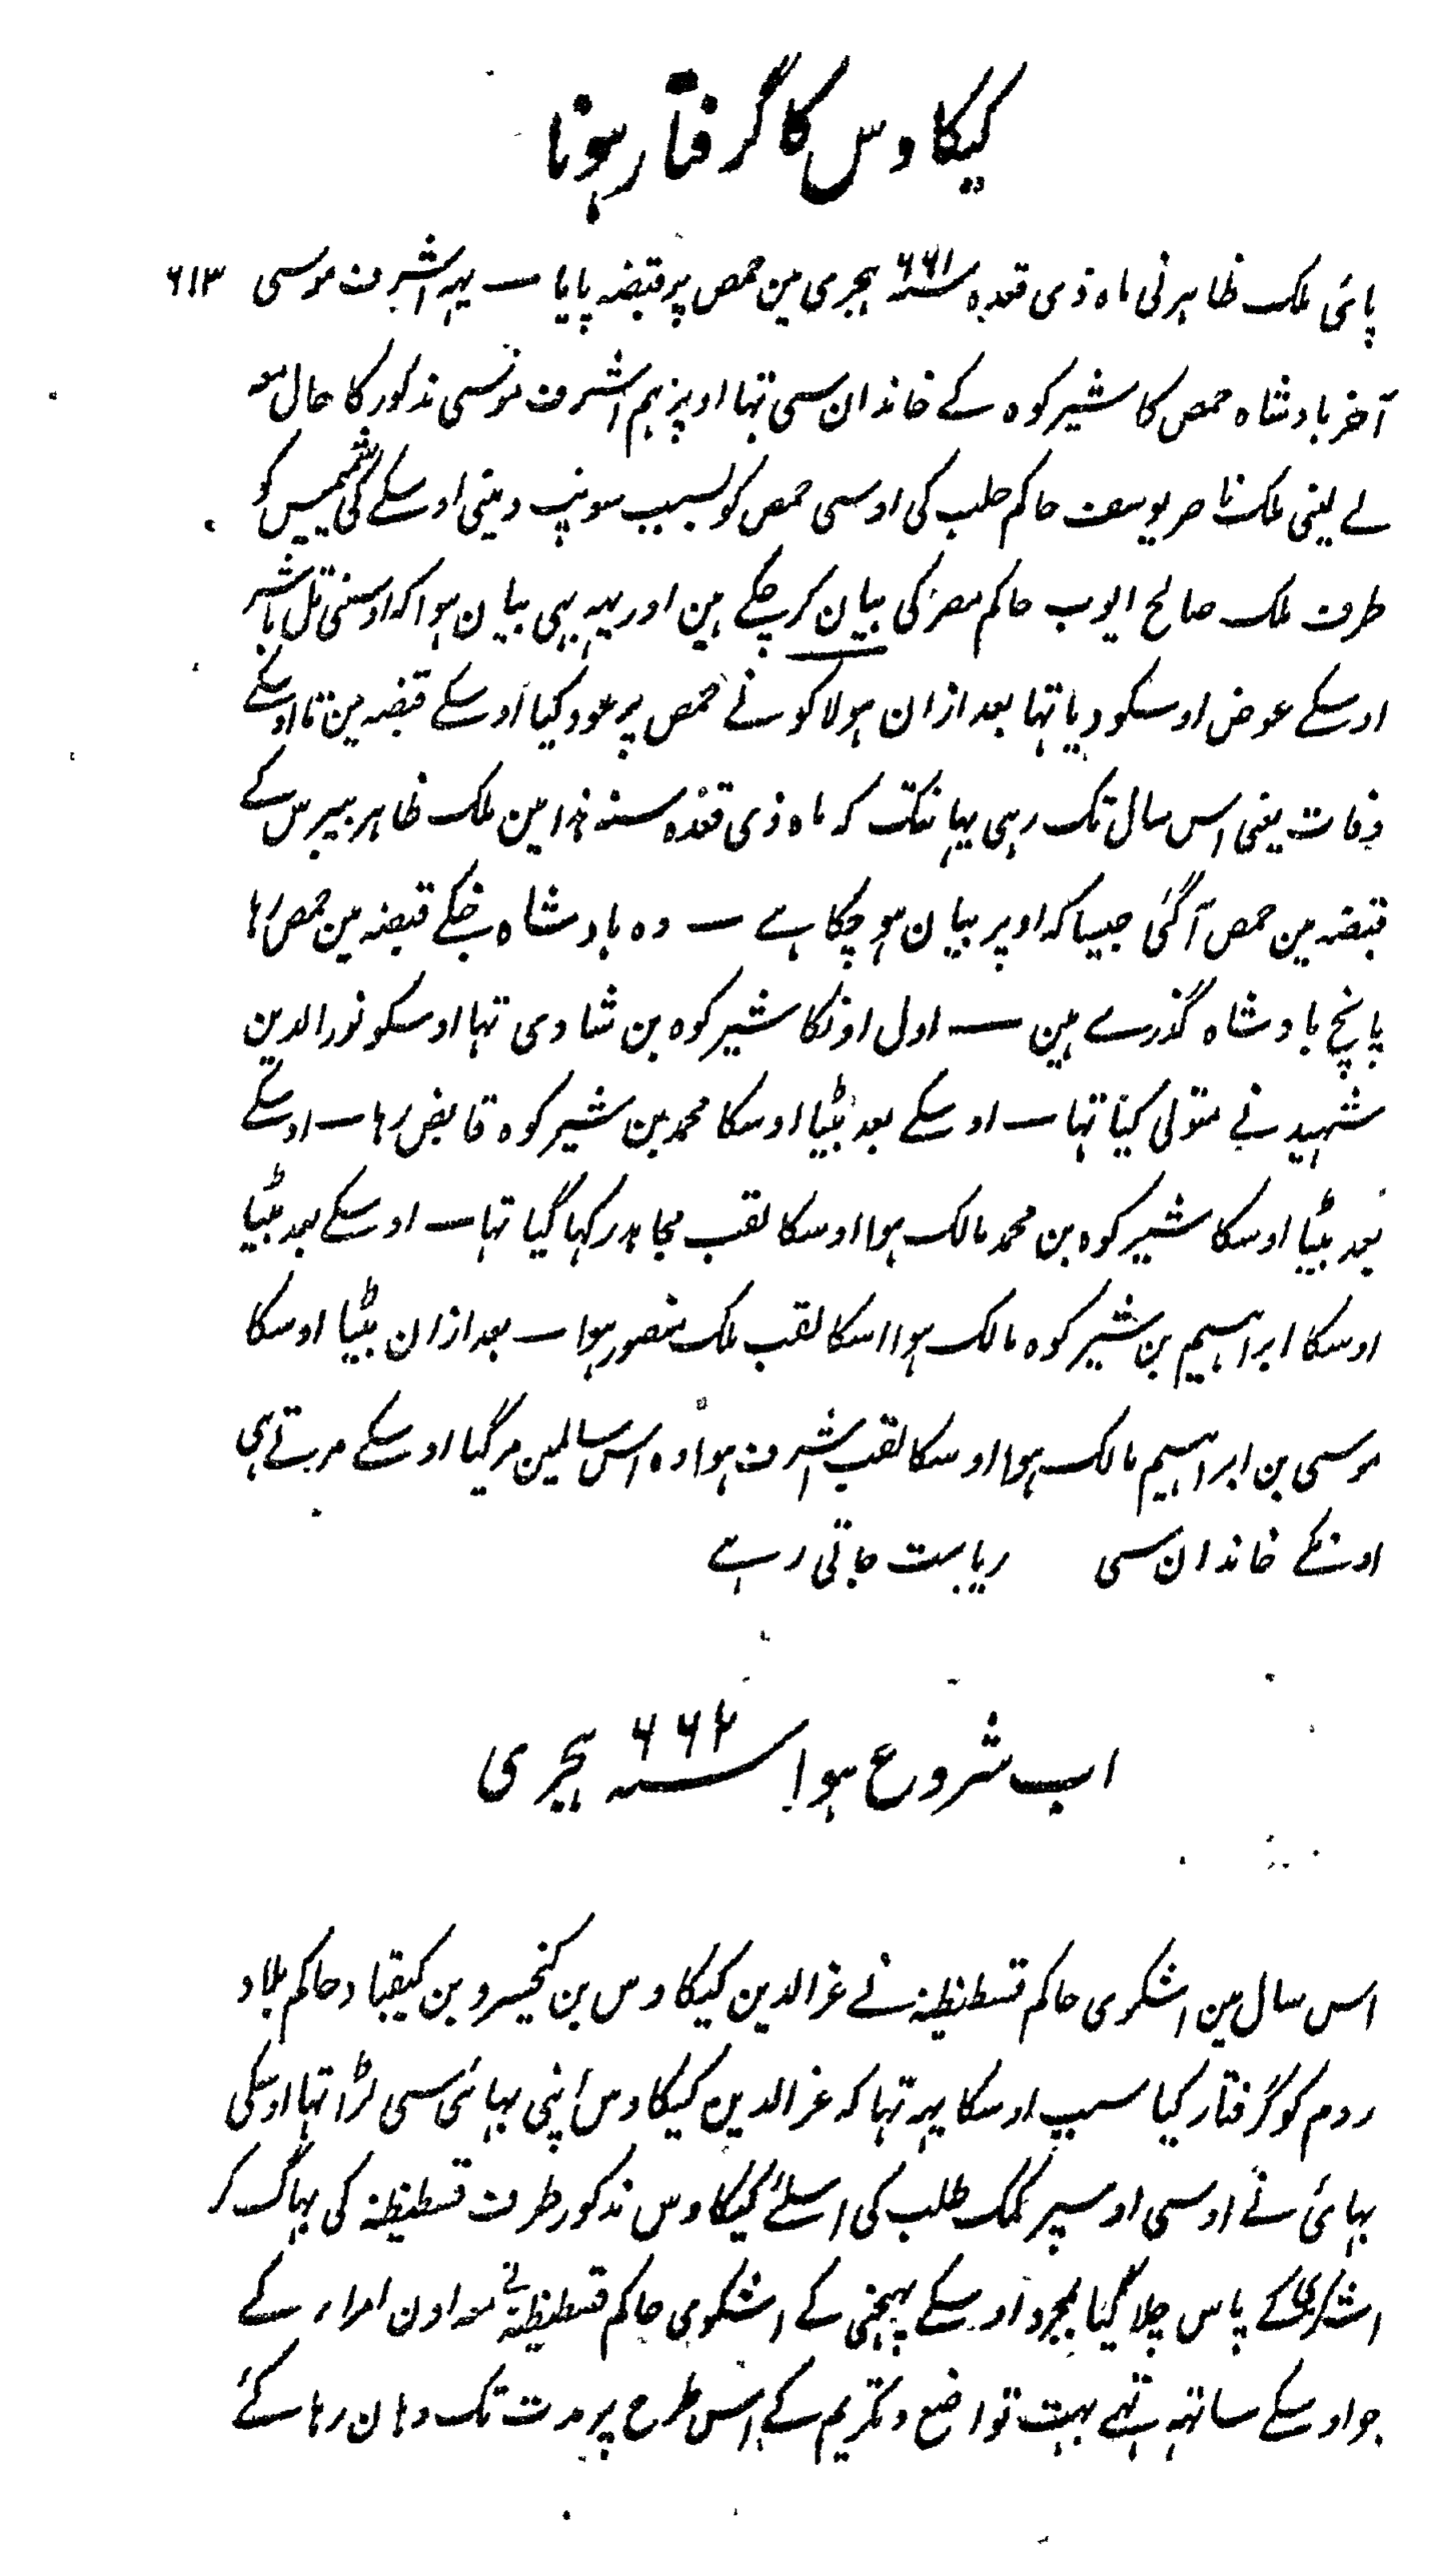 کیکاوس کا گرفتار ہونا
پائی ملک ظاہر نی ماہ ذی قعدہ سنہ ۶۶۱ ہجری مین حمص پر قبضہ پایا ــ یہہ اشرف موسی ۶۱۳
آخر بادشاہ حمص کا شیرکوہ کے خاندان سی تہا اوپر ہم اشرف موسی مذکور کا حال معہ
لے لینی ملک ناصر یوسف حاکم حلب کی اوسی حمص کو بسبب سونپ دینی اوسکے کی شمیس کو
طرف ملک صالح ایوب حاکم مصر کی بیان کر چکے ہین اور یہہ بہی بیان ہوا کہ اوسنی تل باشر
اوسکے عوض اوسکو دیا تہا بعد ازان ہولاکو نے حمص پر عود کیا اوسکے قبضہ مین تا اوسکے
وفات یعنی اس سال تک رہی یہانتک کہ ماہ ذی قعدہ سنہ ہذا مین ملک ظاہر بیبرس کے
قبضہ مین حمص آگئی جیسا کہ اوپر بیان ہو چکا ہے ــ وہ بادشاہ جنکے قبضہ مین حمص رہا
پانچ بادشاہ گذرے ہین ــ اول اونکا شیرکوہ بن شادی تہا اوسکو نور الدین
شہید نے متولی کیا تہا ــ اوسکے بعد بیٹا اوسکا محمد بن شیرکوہ قابض رہا ــ اوسکے
بعد بیٹا اوسکا شیرکوہ بن محمد مالک ہوا اوسکا لقب مجاہد رکہا گیا تہا ــ اوسکے بعد بیٹا
اوسکا ابراہیم بن شیرکوہ مالک ہوا اسکا لقب ملک منصور ہوا ــ بعد ازان بیٹا اوسکا
موسی بن ابراہیم مالک ہوا اوسکا لقب اشرف ہوا وہ اس سالمین مرگیا اوسکے مرتے ہی
اونکے خاندان سی ریاست جاتی رہے
اب شروع ہوا سنہ ۶۶۲ ہجری
اس سال مین اشکری حاکم قسطنطنیہ نے عز الدین کیکاوس بن کیخسرو بن کیقباد حاکم بلاد
روم کو گرفتار کیا سبب اوسکا یہہ تہا کہ عز الدین کیکاوس اپنی بہائی سی لڑا تہا اوسکی
بہائی نے اوسی اوسپر کمک طلب کی اسلئے کیکاوس مذکور طرف قسطنطنیہ کی بہاگ کر
اشکری کے پاس چلا گیا بمجرد اوسکے پہچنی کے اشکری حاکم قسطنطنیہ نے معہ اون امراء کے
جو اوسکے ساتہہ تہے بہت تواضع و تکریم کے اس طرح پر مدت تک وہان رہا کے